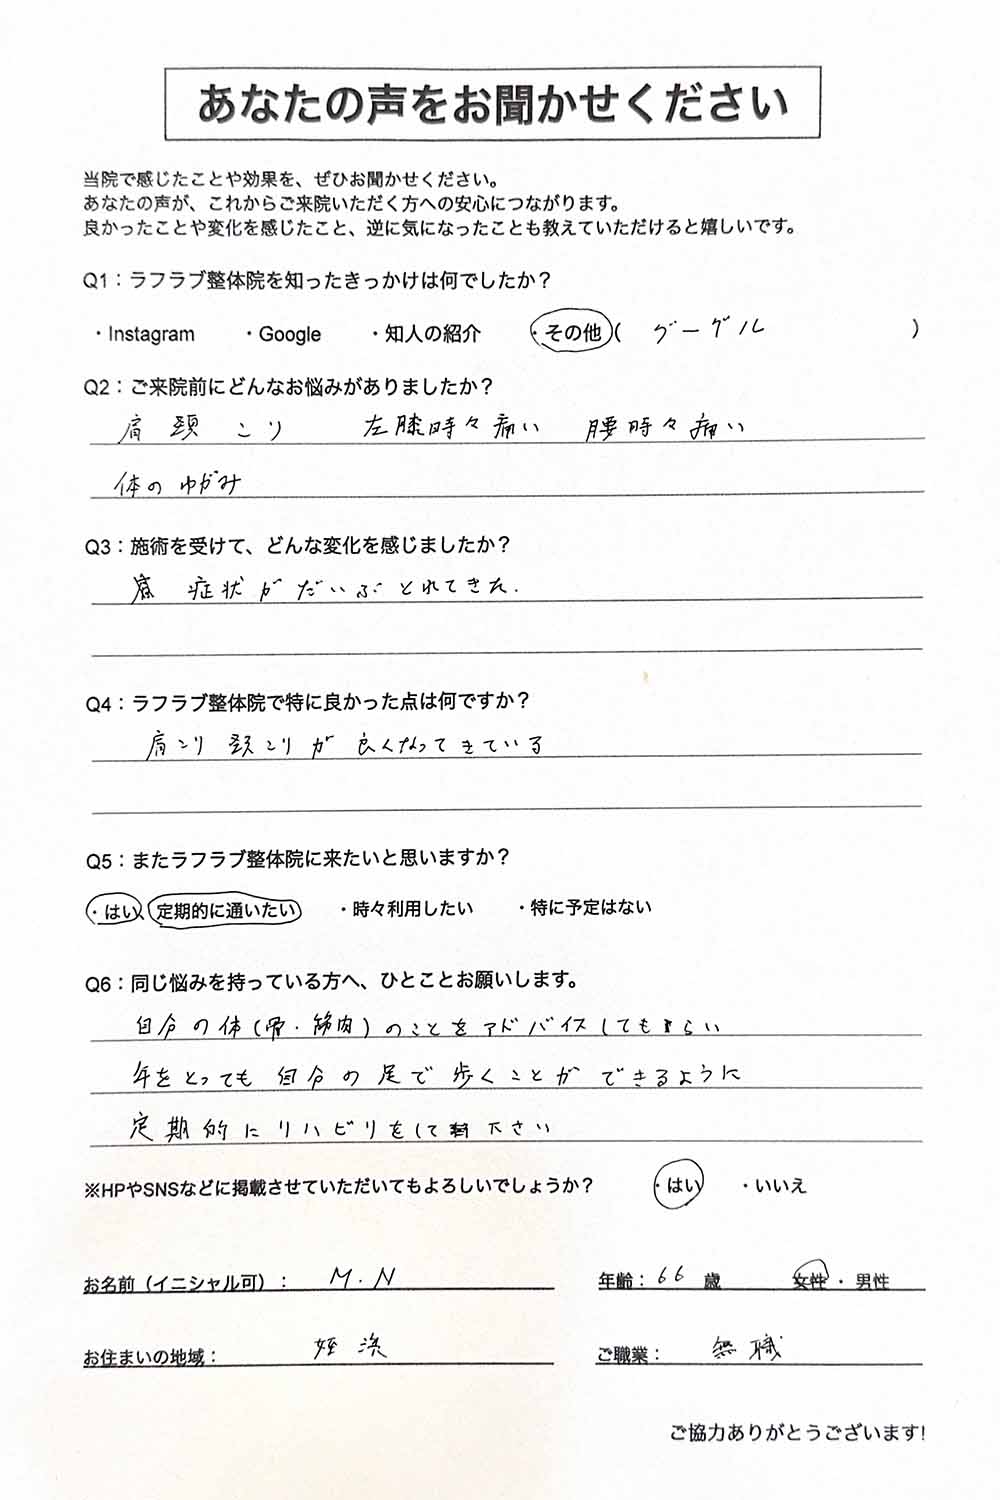 あなたの声をお聞かせください
当院で感じたことや効果を、ぜひお聞かせください。
あなたの声が、これからご来院いただく方への安心につながります。
良かったことや変化を感じたこと、逆に気になったことも教えていただけると嬉しいです。
Q1：ラフラブ整体院を知ったきっかけは何でしたか？
・Instagram ・Google ・知人の紹介 ・その他( グーグル )
Q2：ご来院前にどんなお悩みがありましたか？
肩 頚 こり 左膝時々痛い 腰時々痛い
体のゆがみ
Q3：施術を受けて、どんな変化を感じましたか？
症状がだいぶとれてきた.
Q4：ラフラブ整体院で特に良かった点は何ですか？
肩こり 頚こりが 良くなってきている
Q5：またラフラブ整体院に来たいと思いますか？
・はい、定期的に通いたい ・時々利用したい ・特に予定はない
Q6：同じ悩みを持っている方へ、ひとことお願いします。
自分の体(骨・筋肉)のことをアドバイスしてもらい
年をとっても自分の足で歩くことができるように
定期的にリハビリをして下さい
※HPやSNSなどに掲載させていただいてもよろしいでしょうか？ ・はい ・いいえ
お名前（イニシャル可）： M.N 年齢：66 歳 女性 ・ 男性
お住まいの地域： 姪浜 ご職業： 無職
ご協力ありがとうございます!